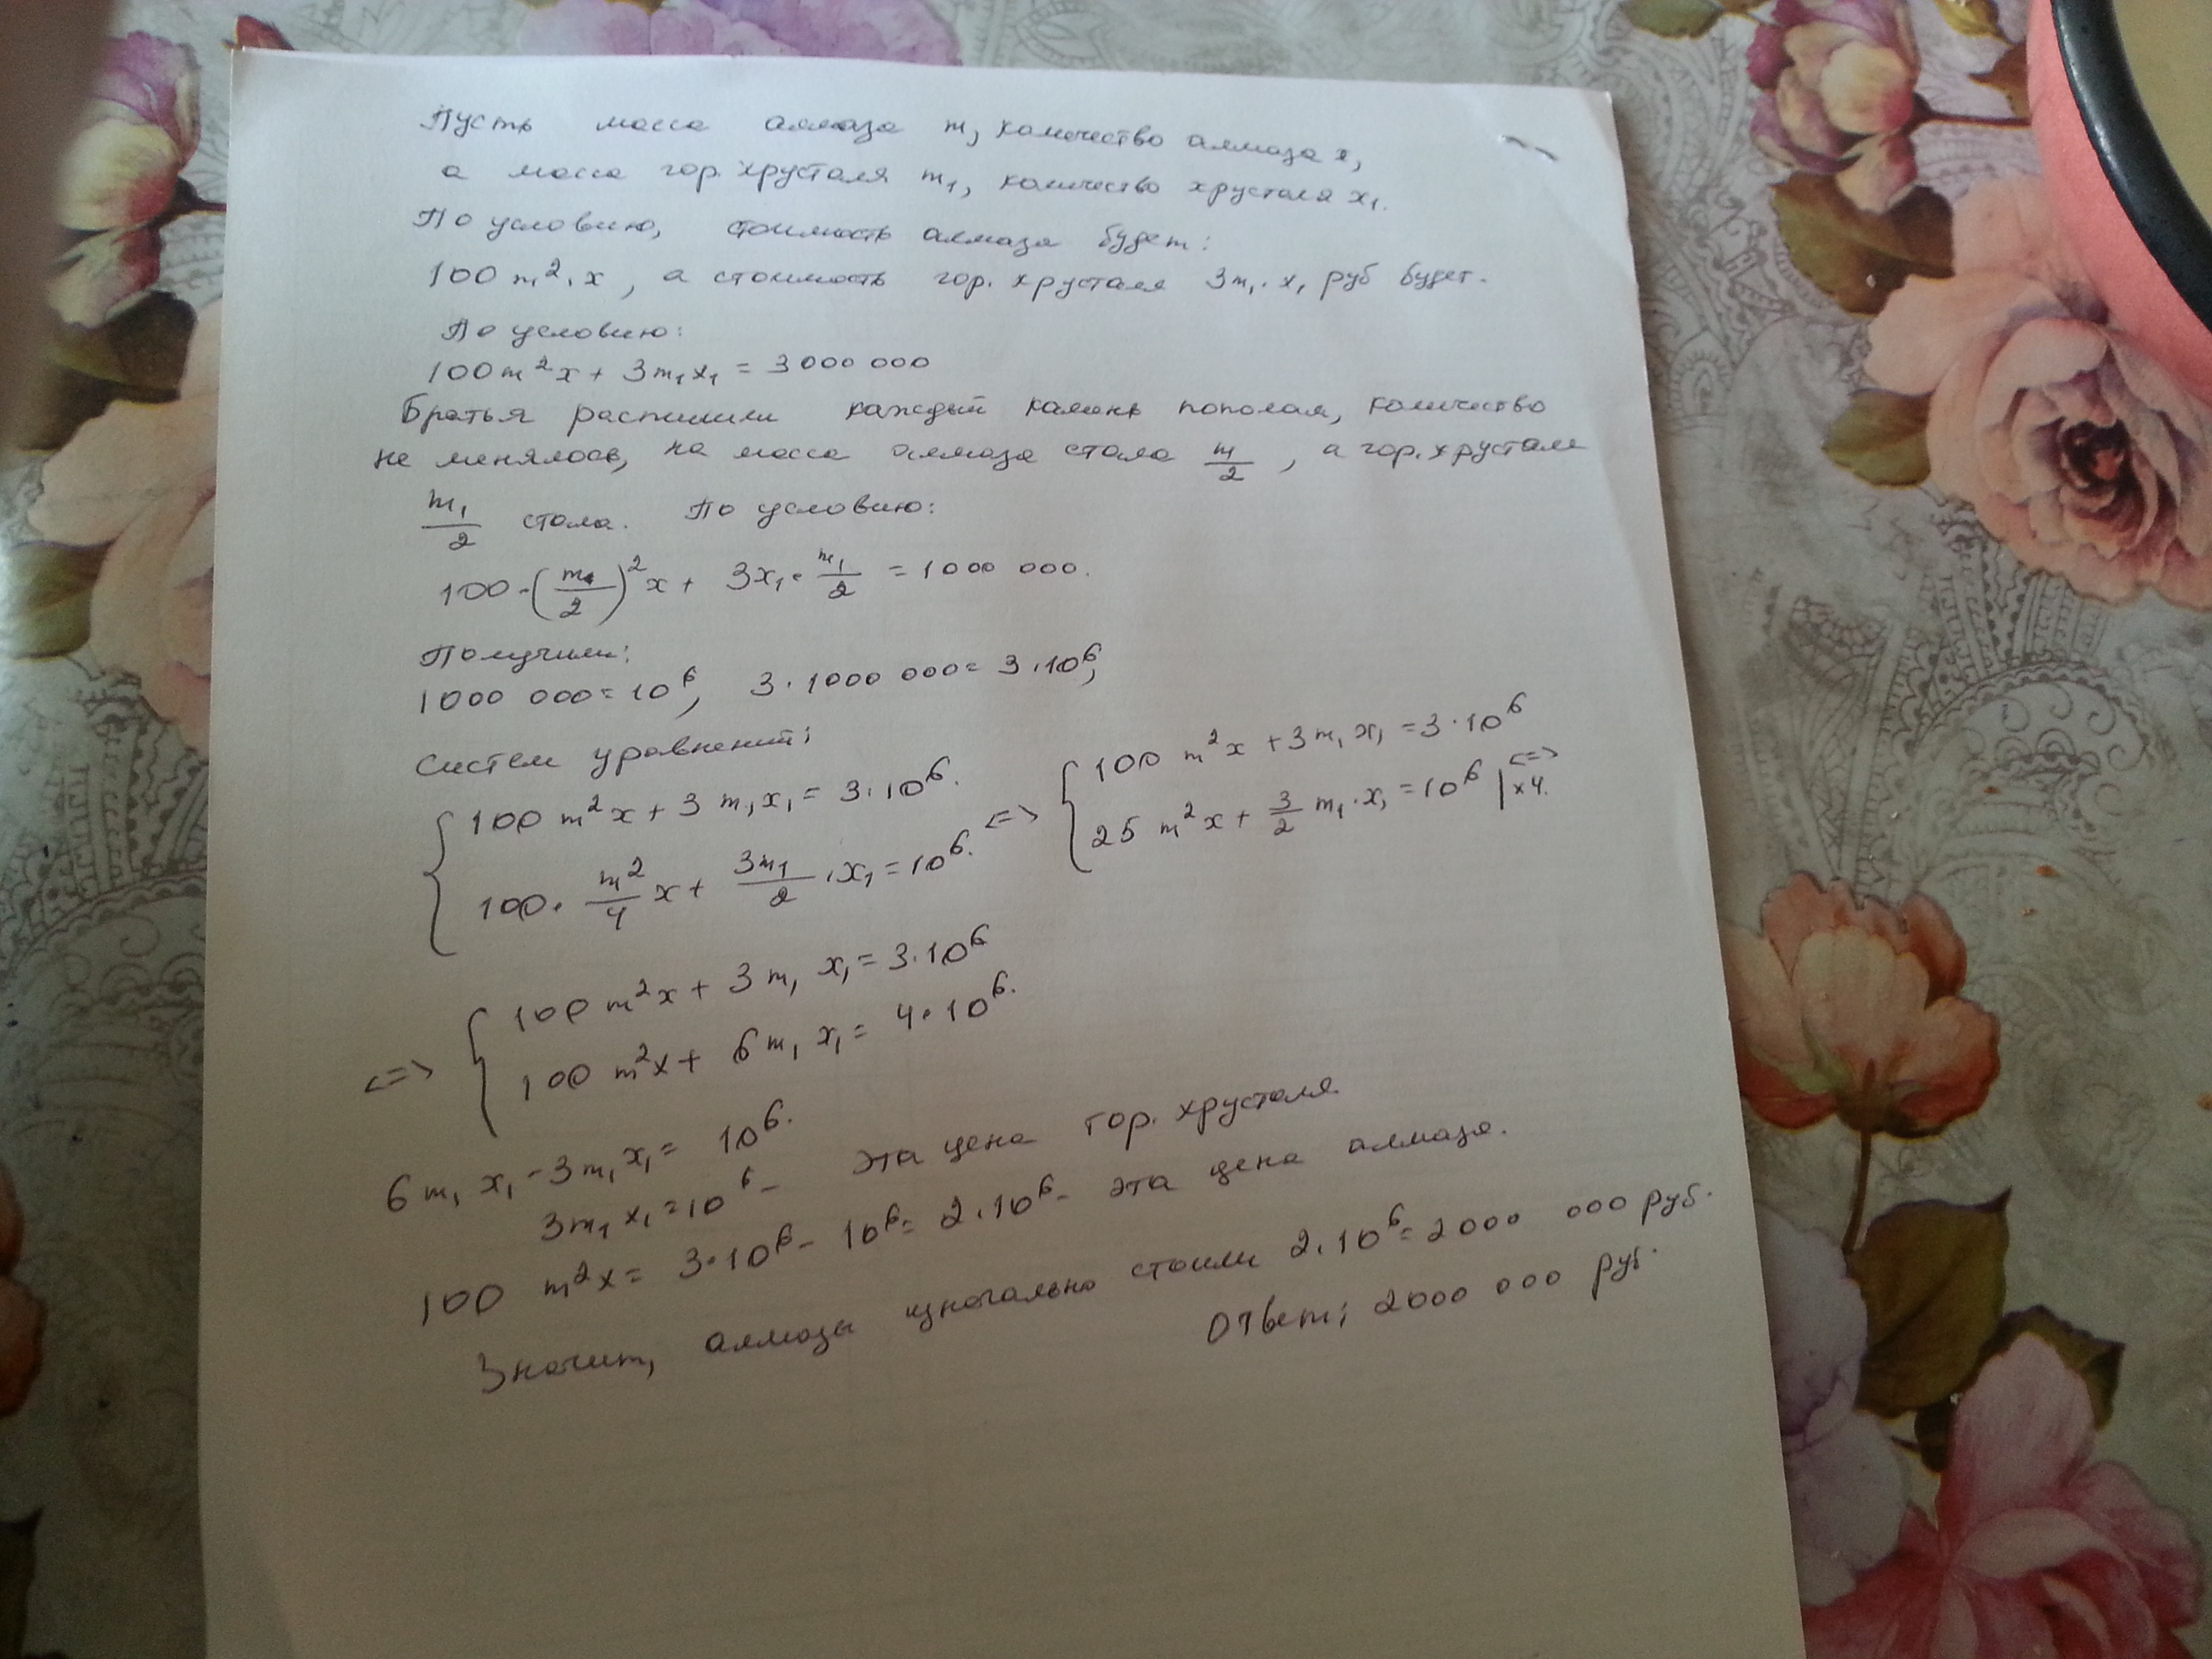 Пусть масса алмаза m, количество алмаза x,
а масса гор. хрусталя m₁, количество хрусталя x₁.
По условию, стоимость алмаза будет:
100 m²·x, а стоимость гор. хрусталя 3m₁·x₁ руб будет.
По условию:
100m²x + 3m₁x₁ = 3000 000
Братья распилили каждый камень пополам, количество
не менялось, на масса алмаза стала m/2, а гор. хрусталя
m₁/2 стала. По условию:
100·(m/2)²x + 3x₁·m₁/2 = 1000 000.
Получили:
1000 000 = 10⁶, 3·1000 000 = 3·10⁶,
систем уравнений:
{ 100 m²x + 3 m₁x₁ = 3·10⁶. <=> { 100 m²x + 3m₁x₁ = 3·10⁶ <=>
100· m²/4 x + 3m₁/2 ·x₁ = 10⁶. 25 m²x + 3/2 m₁·x₁ = 10⁶ | ×4.
<=> { 100 m²x + 3 m₁ x₁ = 3·10⁶
100 m²x + 6 m₁ x₁ = 4·10⁶.
6 m₁ x₁ - 3 m₁ x₁ = 10⁶.
3m₁ x₁ = 10⁶ - эта цена гор. хрусталя.
100 m²x = 3·10⁶ - 10⁶ = 2·10⁶ - эта цена алмаза.
Значит, алмазы изначально стоили 2·10⁶ = 2000 000 руб.
Ответ: 2000 000 руб.